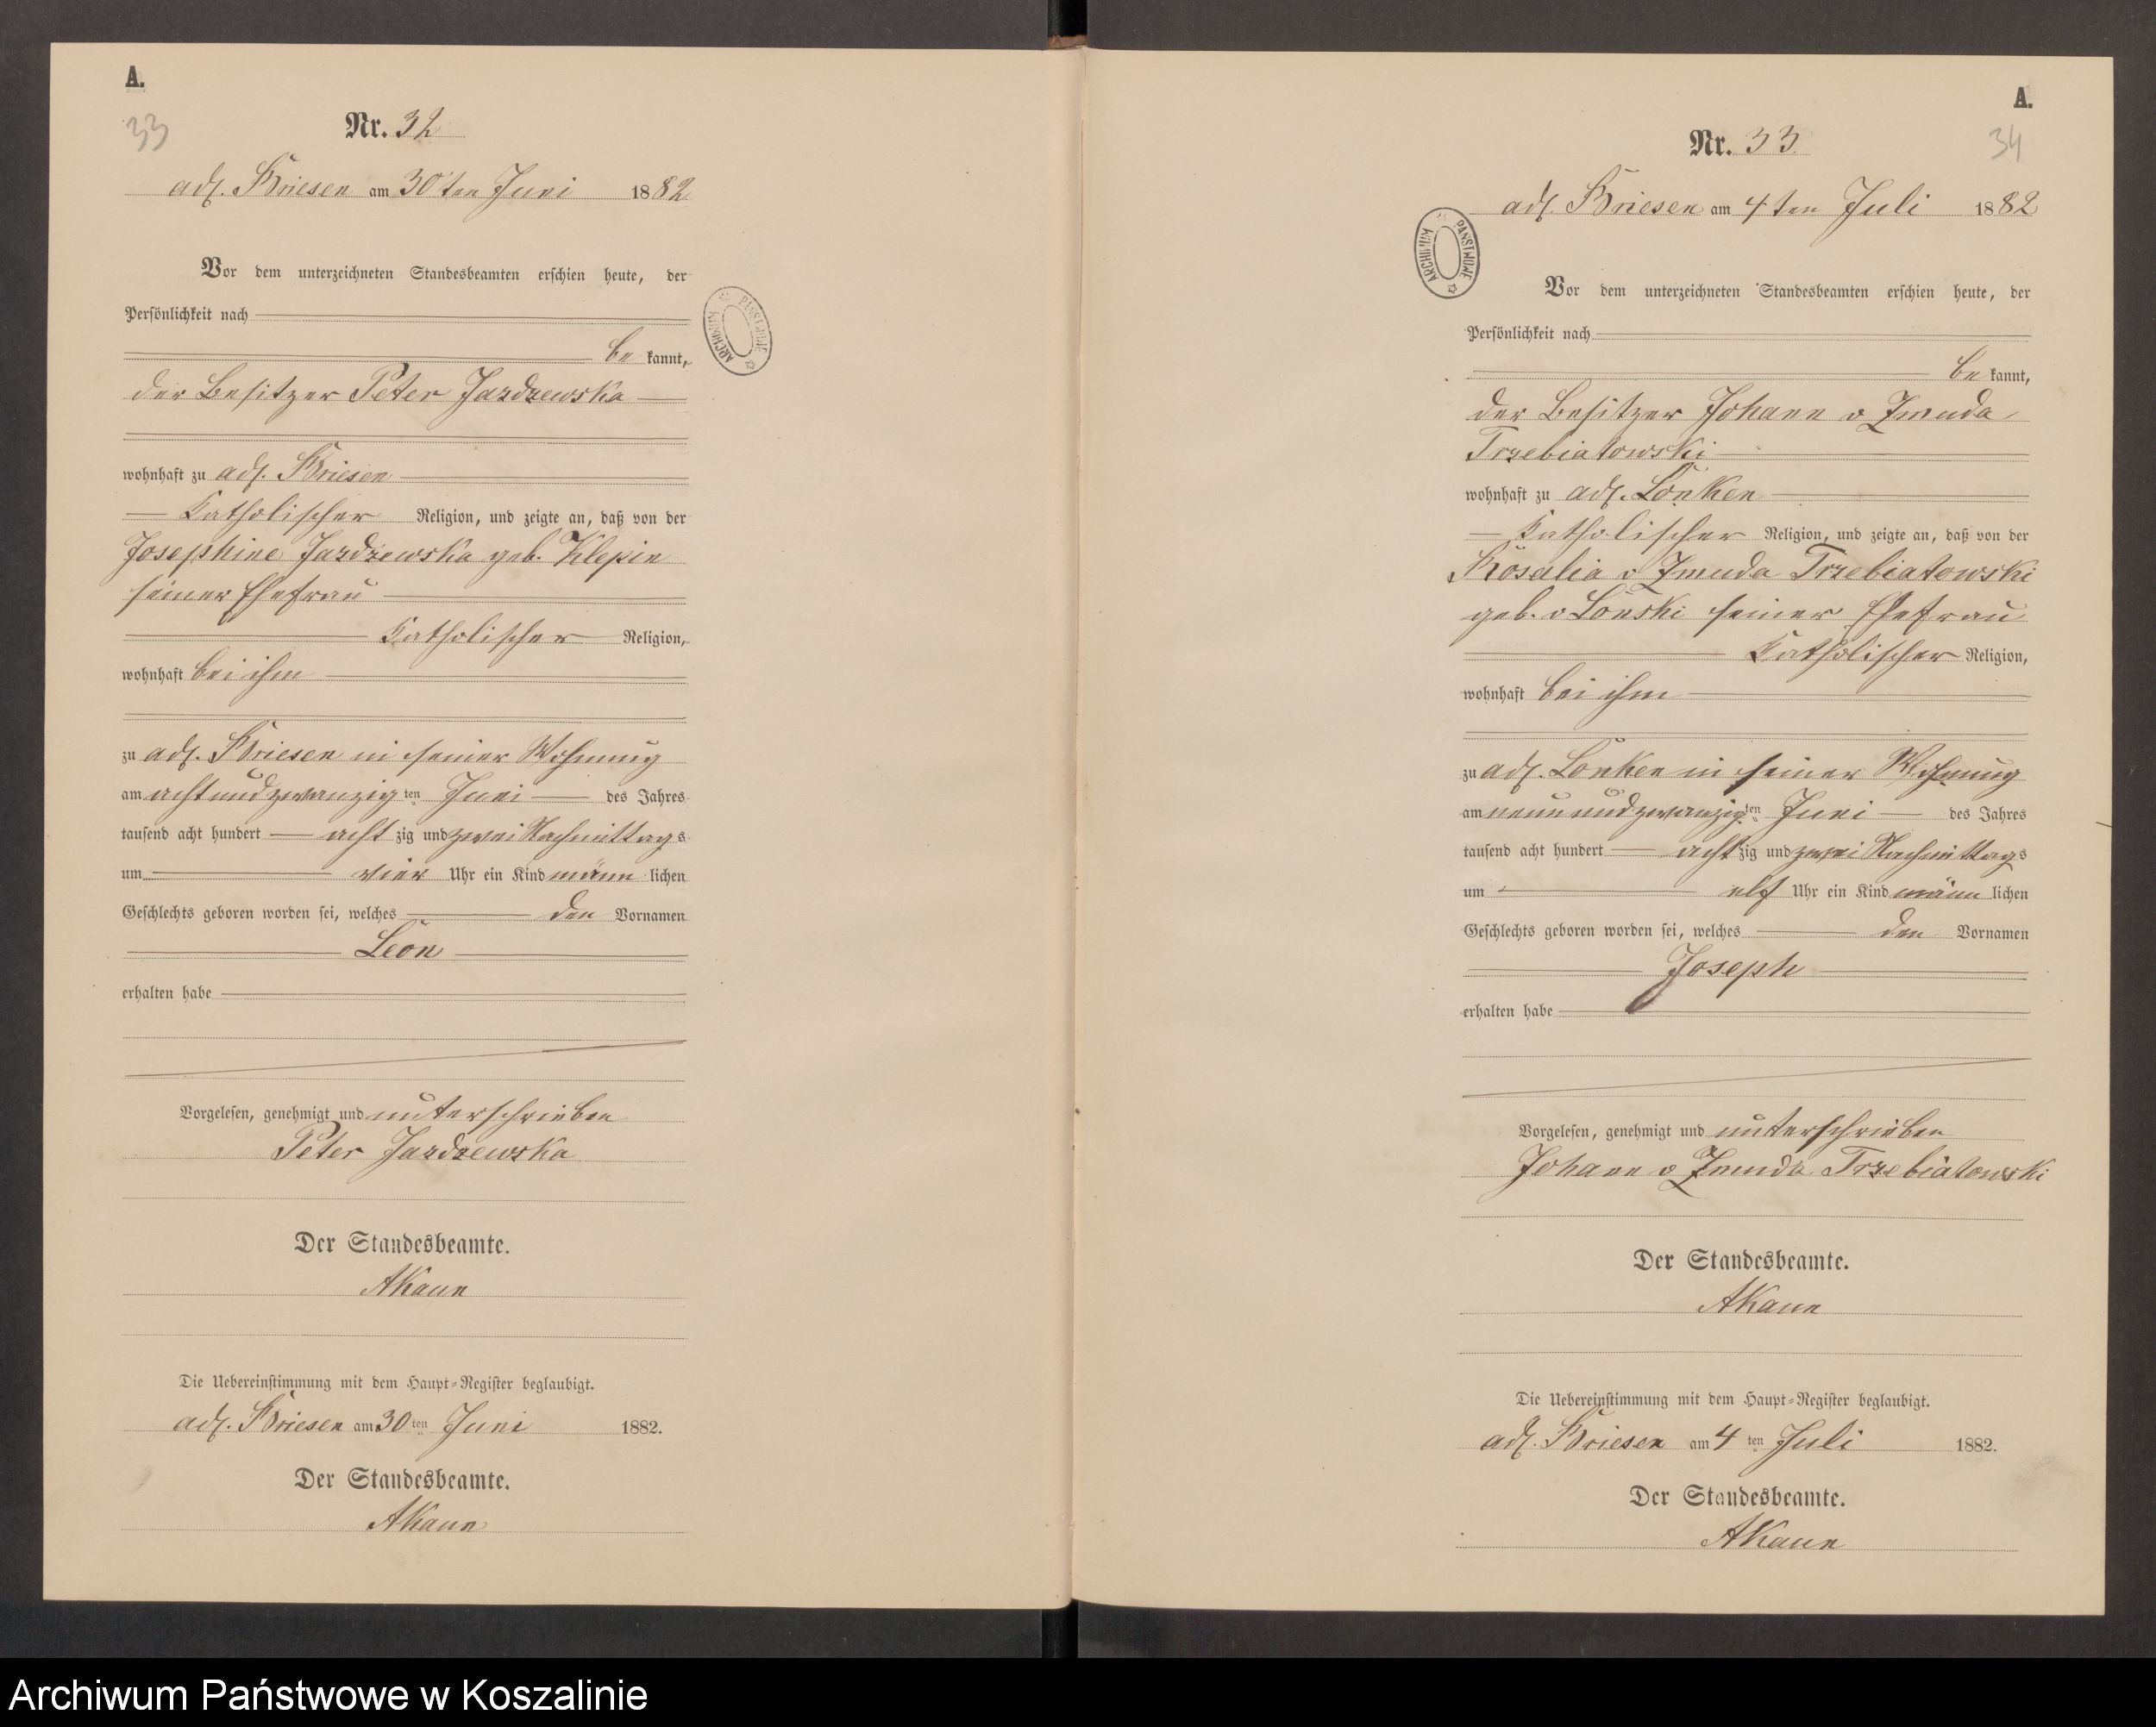 A.
33
Nr. 32
adl. Briesen am 30ten Juni 1882
Vor dem unterzeichneten Standesbeamten erschien heute, der
Persönlichkeit nach
be kannt,
der Besitzer Peter Jazdzewska
wohnhaft zu adl. Briesen
Katholischer Religion, und zeigte an, daß von der
Josephine Jazdzewska geb. Klepin
seiner Ehefrau
Katholischer Religion,
wohnhaft bei ihm
zu adl. Briesen in seiner Wohnung
am achtundzwanzig ten Juni des Jahres
tausend acht hundert acht zig und zwei Nachmittags
um vier Uhr ein Kind männ lichen
Geschlechts geboren worden sei, welches den Vornamen
Leon
erhalten habe
Vorgelesen, genehmigt und unterschrieben
Peter Jazdzewska
Der Standesbeamte.
AKaun
Die Uebereinstimmung mit dem Haupt-Register beglaubigt.
adl. Briesen am 30 ten Juni 1882.
Der Standesbeamte.
AKaun
ARCHIWUM PAŃSTWOWE
A.
34
Nr. 33
adl. Briesen am 4ten Juli 1882
ARCHIWUM PAŃSTWOWE
Vor dem unterzeichneten Standesbeamten erschien heute, der
Persönlichkeit nach
be kannt,
der Besitzer Johann v Zmuda
Trzebiatowski
wohnhaft zu adl. Lonken
Katholischer Religion, und zeigte an, daß von der
Rosalia v Zmuda Trzebiatowski
geb. v Lonski seiner Ehefrau
Katholischer Religion,
wohnhaft bei ihm
zu adl. Lonken in seiner Wohnung
am neunundzwanzig ten Juni des Jahres
tausend acht hundert acht zig und zwei Nachmittags
um elf Uhr ein Kind männ lichen
Geschlechts geboren worden sei, welches den Vornamen
Joseph
erhalten habe
Vorgelesen, genehmigt und unterschrieben
Johann v Zmuda Trzebiatowski
Der Standesbeamte.
AKaun
Die Uebereinstimmung mit dem Haupt-Register beglaubigt.
adl. Briesen am 4 ten Juli 1882.
Der Standesbeamte.
AKaun
Archiwum Państwowe w Koszalinie